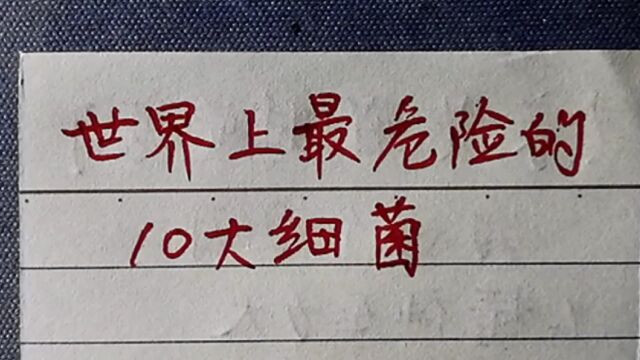 世界上最危险的
10大细菌